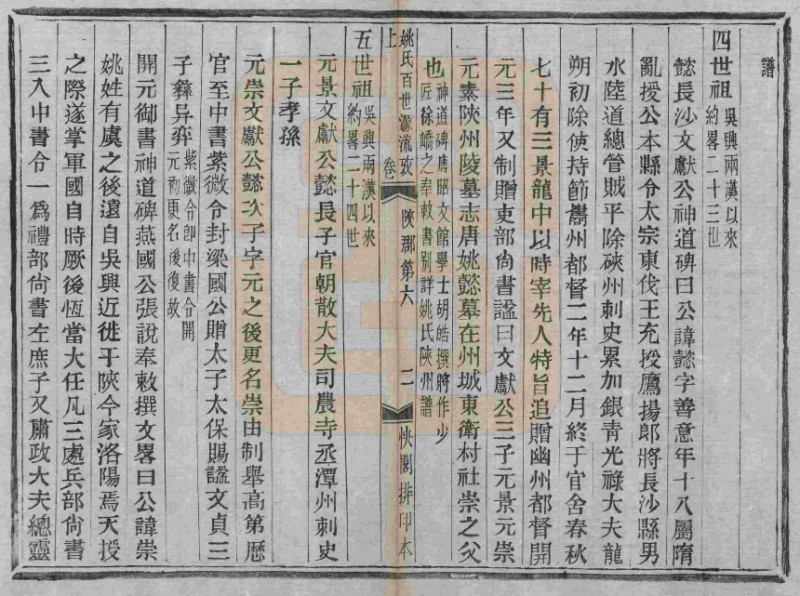 譜
四世祖 吳興兩漢以來
約畧二十三世
懿長沙文獻公神道碑曰公諱懿字善意年十八屬隋
亂授公本縣令太宗東伐王充授鷹揚郎將長沙縣男
水陸道總管賊平除硤州刺史累加銀青光祿大夫龍
朔初除使持節巂州都督二年十二月終于官舍春秋
七十有三景龍中以時宰先人特旨追贈幽州都督開
元三年又制贈吏部尙書諡曰文獻公三子元景元崇
元素陝州陵墓志唐姚懿墓在州城東衛村社崇之父
也 神道碑唐昭文館學士胡皓撰將作少
匠徐嶠之奉敕書別詳姚氏陝州譜
姚氏百世源流攷 卷上 陝郡第六 二 快閣排印本
五世祖 吳興兩漢以來
約畧二十四世
元景文獻公懿長子官朝散大夫司農寺丞潭州刺史
一子孝孫
元崇文獻公懿次子字元之後更名崇由制舉高第歷
官至中書紫微令封梁國公贈太子太保賜諡文貞三
子彝异弈 紫微令卽中書令開
元初更名後復故
開元御書神道碑燕國公張說奉敕撰文畧曰公諱崇
姚姓有虞之後遠自吳興近徙于陝今家洛陽焉天授
之際遂掌軍國自時厥後恆當大任凡三處兵部尙書
三入中書令一爲禮部尙書左庶子又肅政大夫總靈